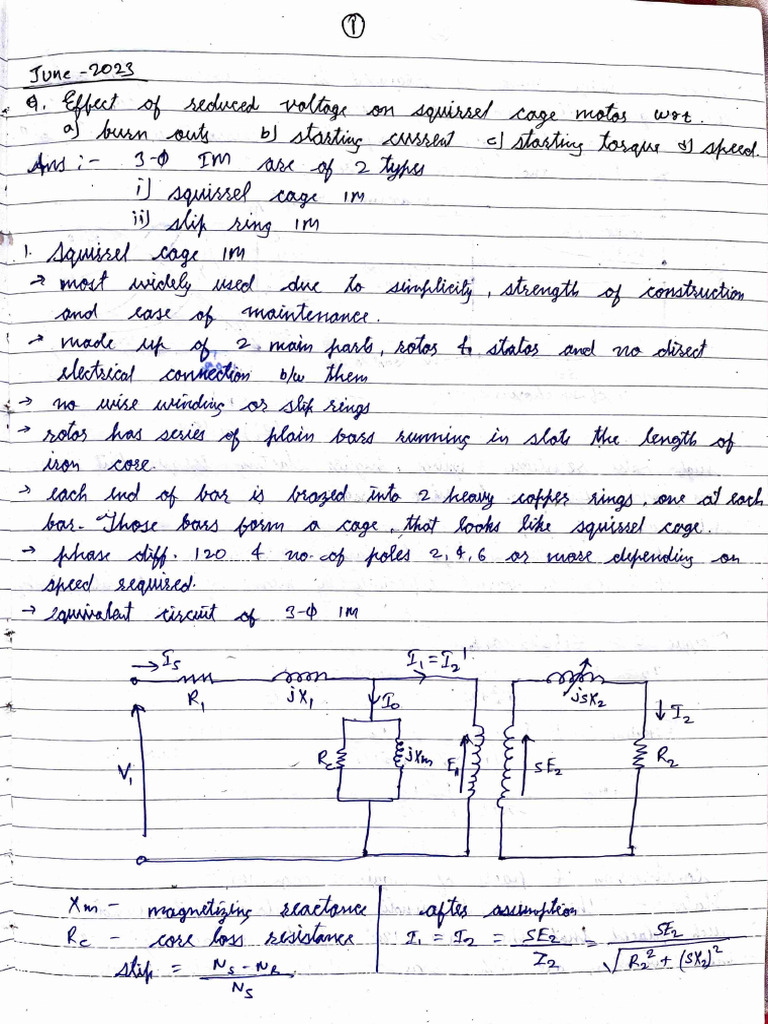 ①
June - 2023
Q. Effect of reduced voltage on squirrel cage motor wrt.
a) burn outs b) starting current c) starting torque d) speed.
Ans :- 3-Φ IM are of 2 types
i) squirrel cage IM
ii) slip ring IM
1. Squirrel cage IM
→ most widely used due to simplicity, strength of construction
and ease of maintenance.
→ made up of 2 main parts, rotor & stator and no direct
electrical connection b/w them
→ no wire winding or slip rings
→ rotor has series of plain bars running in slots the length of
iron core.
→ each end of bar is brazed into 2 heavy copper rings, one at each
bar. Those bars form a cage, that looks like squirrel cage.
→ phase diff. 120 & no. of poles 2, 4, 6 or more depending on
speed required.
→ equivalent circuit of 3-Φ IM
→ Is
I₁ = I₂'
R₁
jX₁
I₀
jsX₂
I₂
V₁
Rc
jXm
E₁
SE₂
R₂
Xm - magnetizing reactance
Rc - core loss resistance
slip = Ns - NR / Ns
after assumption
I₁ = I₂ = SE₂ / Z₂ = SE₂ / √R₂² + (SX₂)²